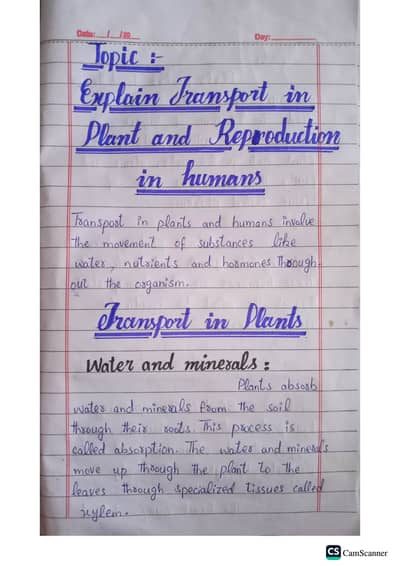 Date: __/__/20__ Day: ________
Topic :-
Explain Transport in
Plant and Reproduction
in humans
Transport in plants and humans involve
the movement of substances like
water, nutrients and hormones through
out the organism.
Transport in Plants
Water and minerals :
Plants absorb
water and minerals from the soil
through their roots. This process is
called absorption. The water and minerals
move up through the plant to the
leaves through specialized tissues called
xylem.
CS CamScanner